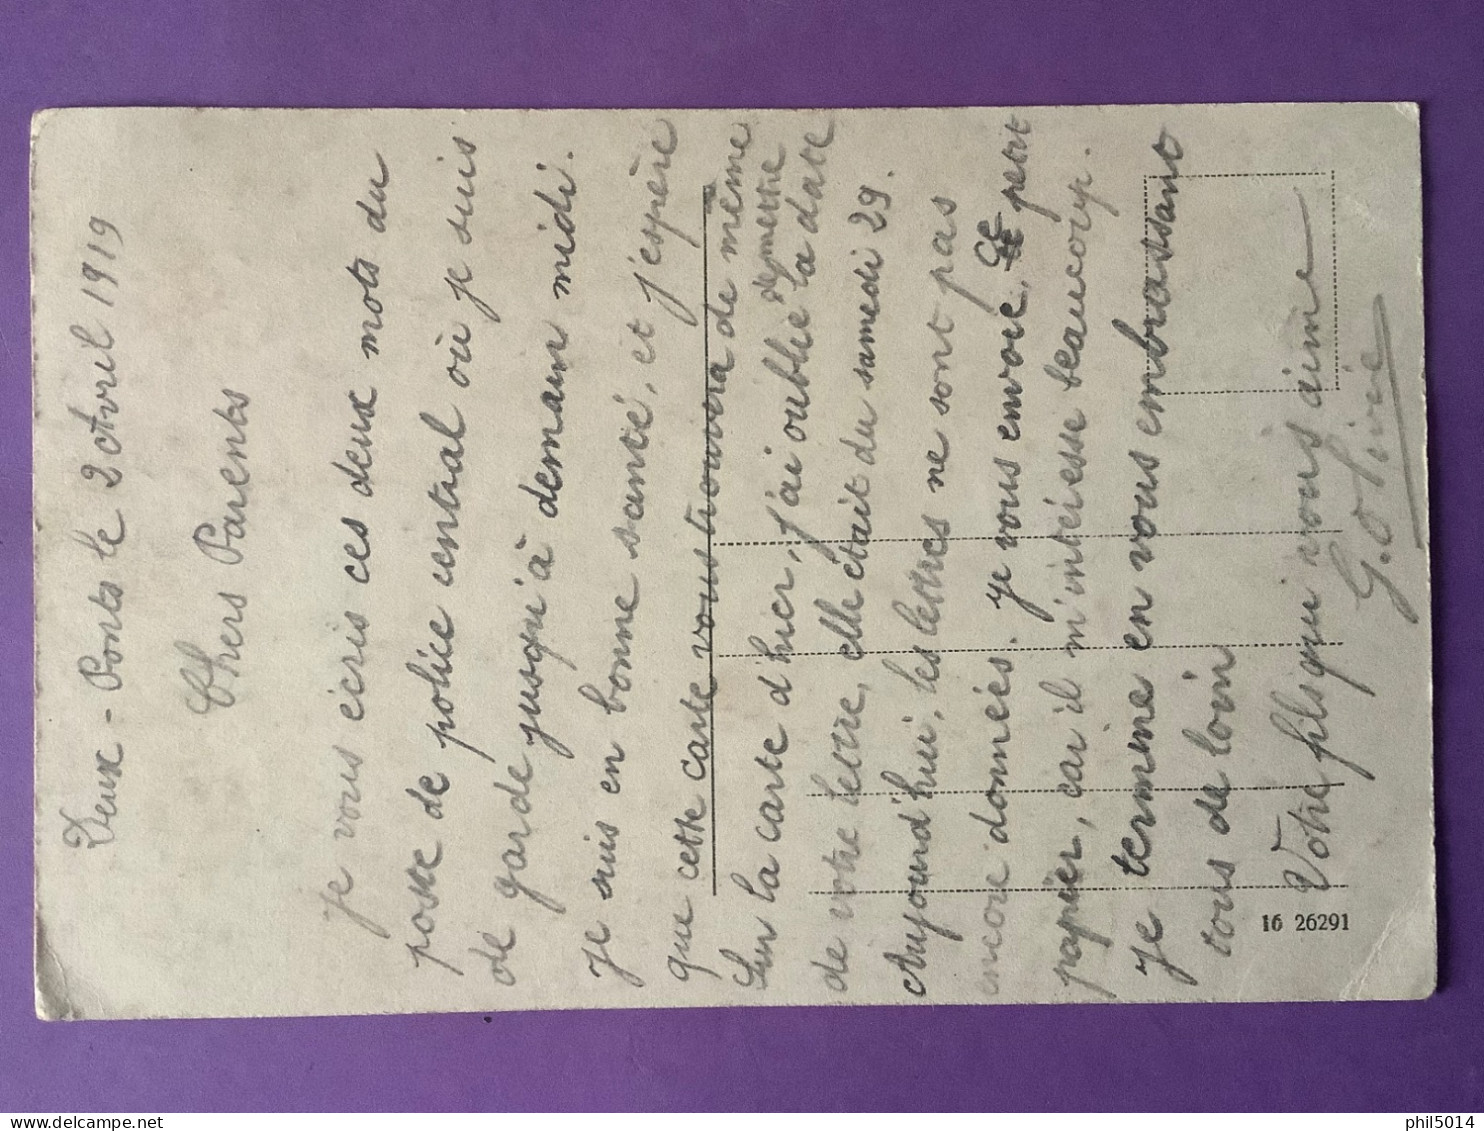 Deux-Ponts le 2 Avril 1919
Chers Parents
Je vous écris ces deux mots du
poste de police central où je suis
de garde jusqu'à demain midi.
Je suis en bonne santé, et j'espère
que cette carte vous trouvera de même
Sur la carte d'hier, j'ai oublié de mettre la date
de votre lettre, elle était du samedi 29.
Aujourd'hui, les lettres ne sont pas
encore données. Je vous envoie, ce petit
papier, car il m'intéresse beaucoup.
Je termine en vous embrassant
tous de loin
Votre fils qui vous aime
G.
16 26291
phil5014